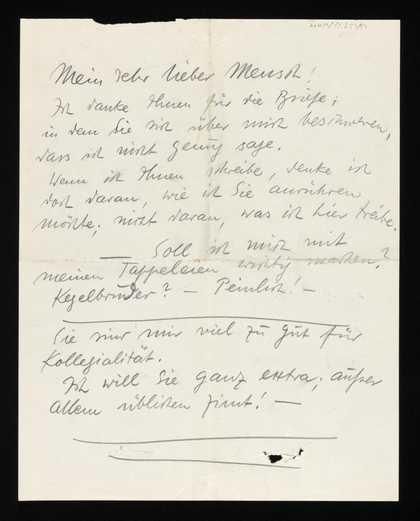 Mein sehr lieber Mensch!
Ich danke Ihnen für die Briefe;
in dem Sie sich über mich beschweren,
dass ich nicht genug sage.
Wenn ich Ihnen schreibe, denke ich
doch daran, wie ich Sie anrühren
möchte; nicht daran, was ich hier treibe.
— Soll ich mich mit
meinen Tappeleien wichtig machen?
Kegelbrüder? — Peinlich! —
Sie sind mir viel zu gut für
Kollegialität.
Ich will Sie ganz extra; außer
allem üblichen Zimt! —